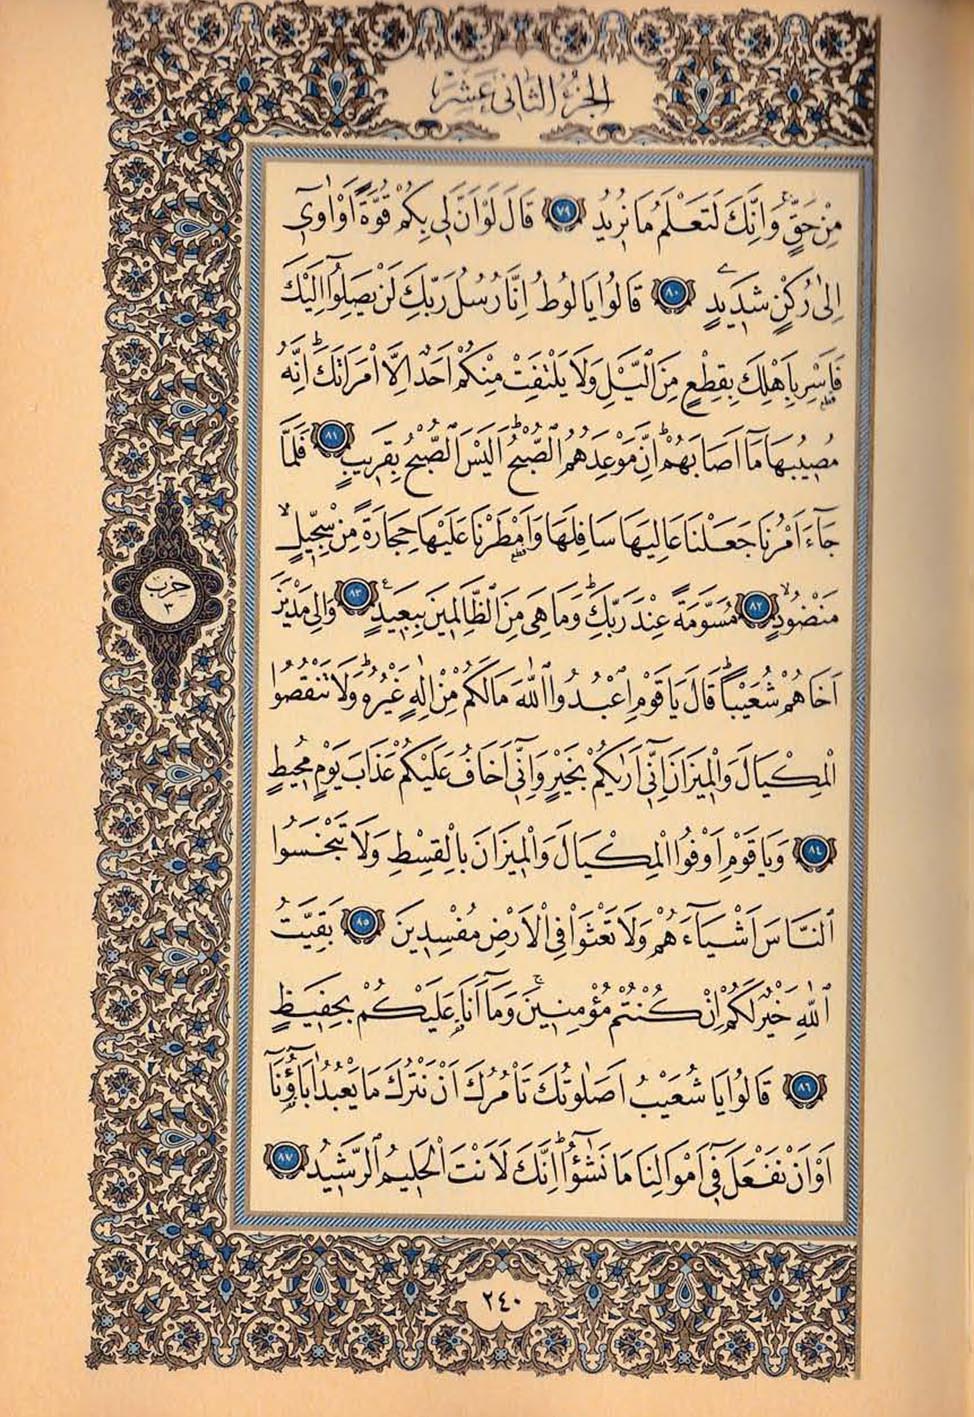 الجزء الثاني عشر
مِنْ حَقٍّۚ وَاِنَّكَ لَتَعْلَمُ مَا نُرٖيدُ ٧٩ قَالَ لَوْ اَنَّ لٖي بِكُمْ قُوَّةً اَوْ اٰوٖٓي
اِلٰى رُكْنٍ شَدٖيدٍ ٨٠ قَالُوا يَا لُوطُ اِنَّا رُسُلُ رَبِّكَ لَنْ يَصِلُٓوا اِلَيْكَ
فَاَسْرِ بِاَهْلِكَ بِقِطْعٍ مِنَ الَّيْلِ وَلَا يَلْتَفِتْ مِنْكُمْ اَحَدٌ اِلَّا امْرَاَتَكَؕ اِنَّهُ
مُصٖيبُهَا مَٓا اَصَابَهُمْؕ اِنَّ مَوْعِدَهُمُ الصُّبْحُؕ اَلَيْسَ الصُّبْحُ بِقَرٖيبٍ ٨١ فَلَمَّا
جَٓاءَ اَمْرُنَا جَعَلْنَا عَالِيَهَا سَافِلَهَا وَاَمْطَرْنَا عَلَيْهَا حِجَارَةً مِنْ سِجّٖيلٍۙ
مَنْضُودٍۙ ٨٢ مُسَوَّمَةً عِنْدَ رَبِّكَؕ وَمَا هِيَ مِنَ الظَّالِمٖينَ بِبَعٖيدٍۚ ٨٣ وَاِلٰى مَدْيَنَ
اَخَاهُمْ شُعَيْبًاؕ قَالَ يَا قَوْمِ اعْبُدُوا اللّٰهَ مَا لَكُمْ مِنْ اِلٰهٍ غَيْرُهُؕ وَلَا تَنْقُصُوا
الْمِكْيَالَ وَالْمٖيزَانَ اِنّٖٓي اَرٰيكُمْ بِخَيْرٍ وَاِنّٖٓي اَخَافُ عَلَيْكُمْ عَذَابَ يَوْمٍ مُحٖيطٍ
٨٤ وَيَا قَوْمِ اَوْفُوا الْمِكْيَالَ وَالْمٖيزَانَ بِالْقِسْطِ وَلَا تَبْخَسُوا
النَّاسَ اَشْيَٓاءَهُمْ وَلَا تَعْثَوْا فِي الْاَرْضِ مُفْسِدٖينَ ٨٥ بَقِيَّتُ
اللّٰهِ خَيْرٌ لَكُمْ اِنْ كُنْتُمْ مُؤْمِنٖينَۚ وَمَٓا اَنَا۬ عَلَيْكُمْ بِحَفٖيظٍ
٨٦ قَالُوا يَا شُعَيْبُ اَصَلٰوتُكَ تَاْمُرُكَ اَنْ نَتْرُكَ مَا يَعْبُدُ اٰبَٓاؤُ۬نَٓا
اَوْ اَنْ نَفْعَلَ فٖٓي اَمْوَالِنَا مَا نَشٰٓؤُ۬اؕ اِنَّكَ لَاَنْتَ الْحَلٖيمُ الرَّشٖيدُ ٨٧
حزب
٣
٢٤٠